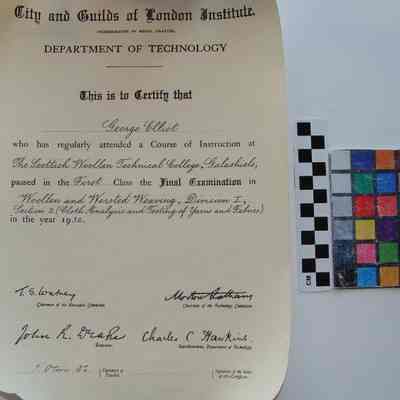 City and Guilds of London Institute.
INCORPORATED BY ROYAL CHARTER.
DEPARTMENT OF TECHNOLOGY
This is to Certify that
George Elliot
who has regularly attended a Course of Instruction at
The Scottish Woollen Technical College, Galashiels,
passed in the First Class the Final Examination in
Woollen and Worsted Weaving, Division I,
Section 2 (Cloth Analysis and Testing of Yarns and Fabrics)
in the year 1932.
Chairman of the Executive Committee.
Chairman of the Technology Committee.
John R. Drake
Charles C. Hawkins.
Secretary.
Superintendent, Department of Technology.
Signature of
Signature of the Issuer
of this Certificate.
CM